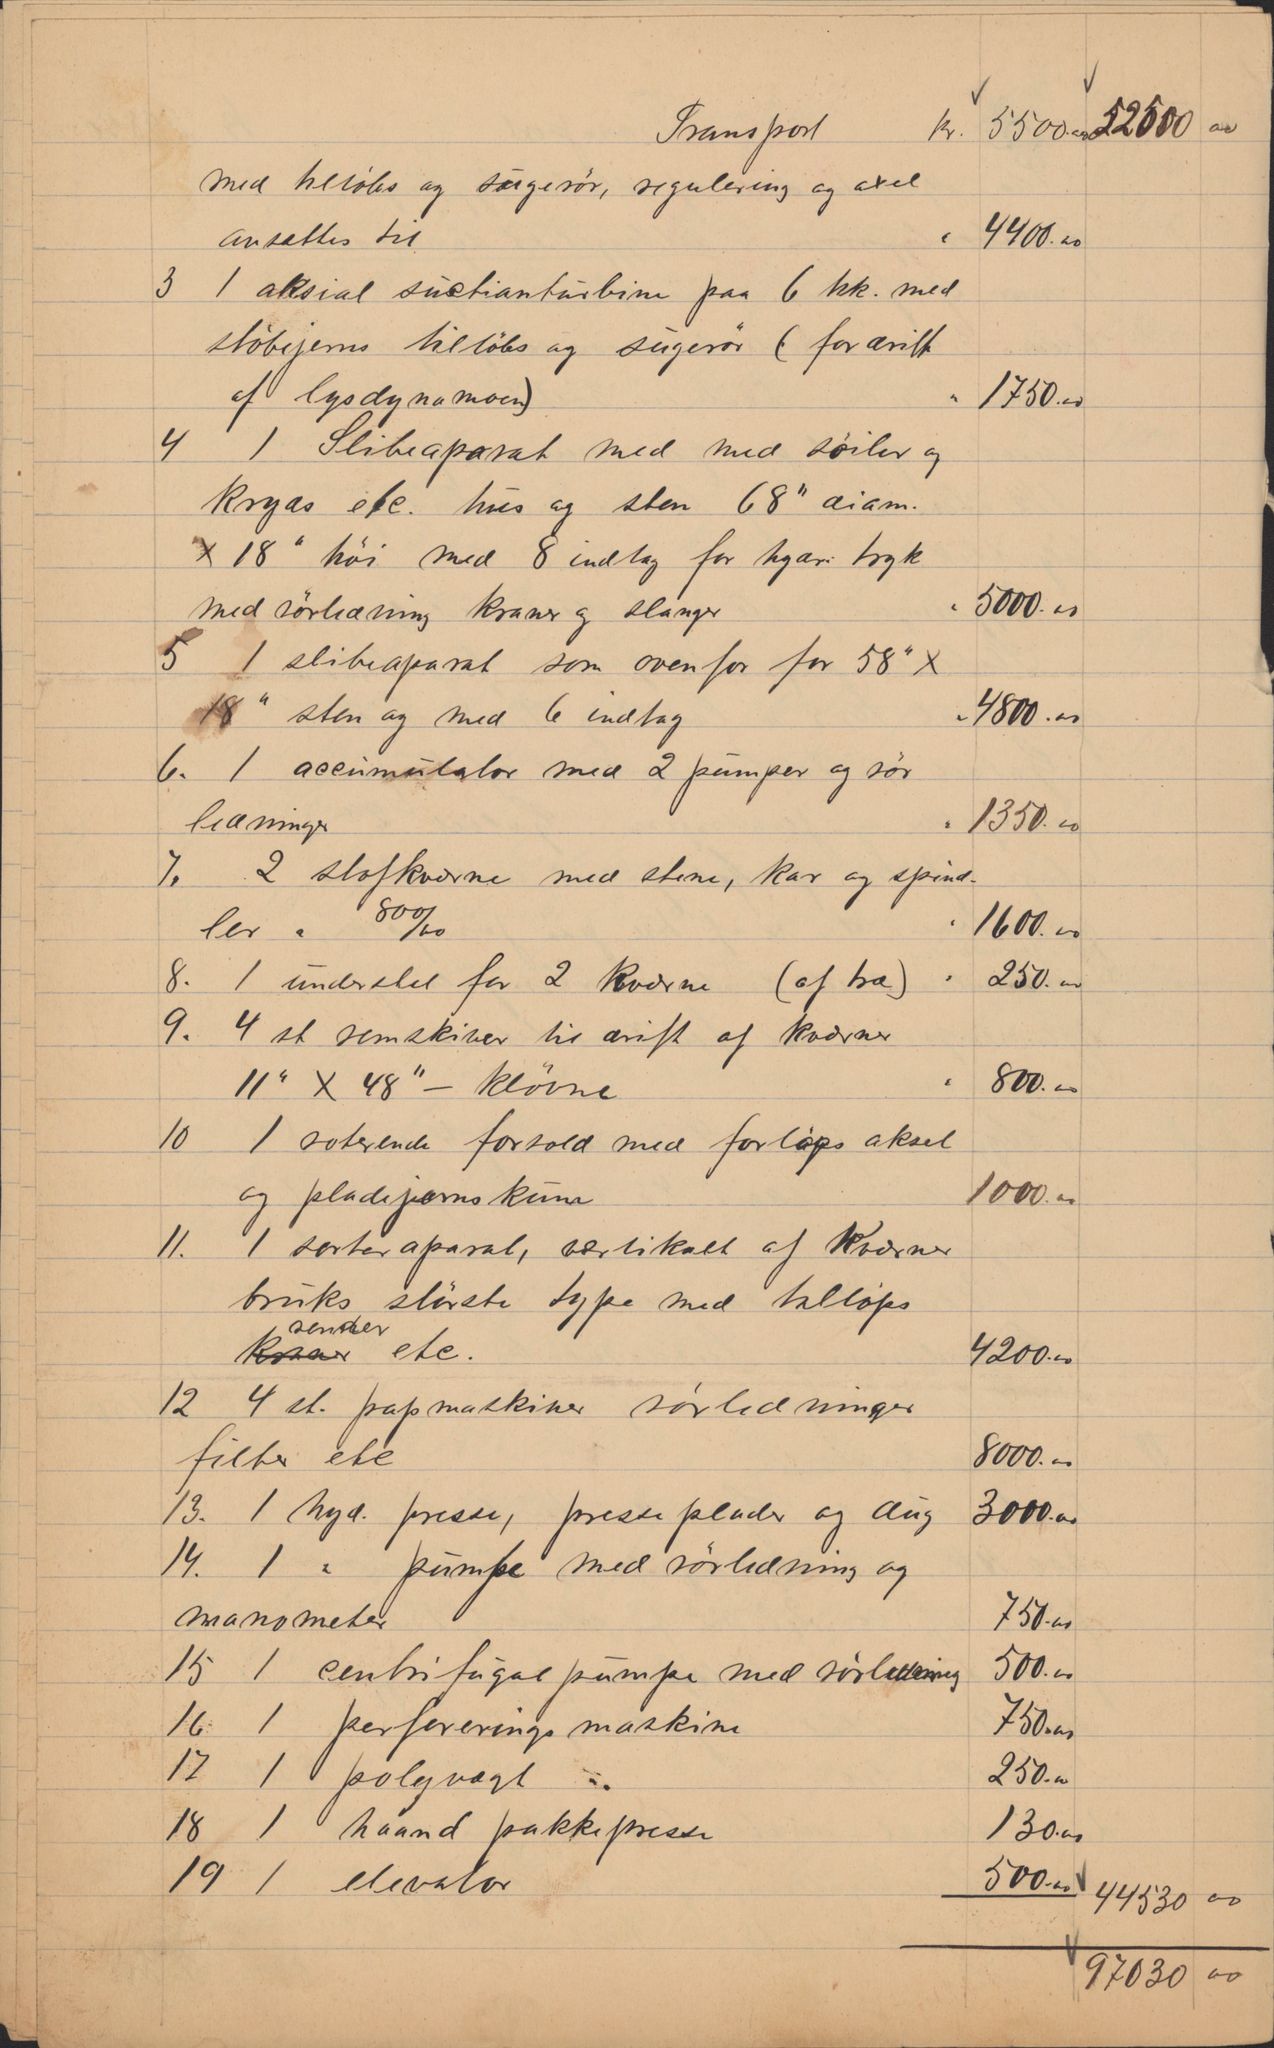 Transport kr. 5500.00 52500 00
med tilløbs og sugerør, regulering og axel
ansættes til " 4400.00
3 1 aksial suctionturbine paa 6 hk. med
støbejerns tilløbs og sugerør (for drift
af lysdynamoen) " 1750.00
4 1 Slibeaparat med med søiler og
kryds etc. hus og sten 68" diam.
X 18" høi med 8 indlag for hydr. tryk
med rørledning kraner og slanger " 5000.00
5 1 slibeaparat som ovenfor for 58" X
18" sten og med 6 indlag " 4800.00
6. 1 accumulator med 2 pumper og rør
ledninger " 1350.00
7. 2 stofkværne med stene, kar og spind-
ler " 800/00 " 1600.00
8. 1 understel for 2 kværne (af træ) " 250.00
9. 4 st remskiver til drift af kværner
11" X 48" — kløvne " 800.00
10 1 roterende forsold med forløps aksel
og pladejerns kum 1000.00
11. 1 sorteraparat, værtikalt af Kværner
bruks største type med tilløps
render
etc. 4200.00
12 4 st. papmaskiner rørledninger
filter etc 8000.00
13. 1 hyd. presse, presseplader og dug 3000.00
14. 1 " pumpe med rørledning og
manometer 750.00
15 1 centrifugal pumpe med rørledning 500.00
16 1 perforerings maskine 750.00
17 1 polyvægt 250.00
18 1 haand pakkepresse 130.00
19 1 elevator 500.00 44530 00
97030 00